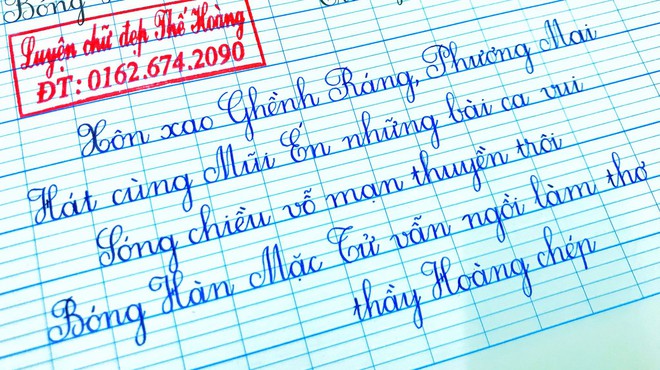 Bóng
Luyện chữ đẹp Thế Hoàng
ĐT: 0162.674.2090
Xôn xao Ghềnh Ráng, Phương Mai
Hát cùng Mũi Én những bài ca vui
Sóng chiều vỗ mạn thuyền trôi
Bóng Hàn Mặc Tử vẫn ngồi làm thơ
thầy Hoàng chép